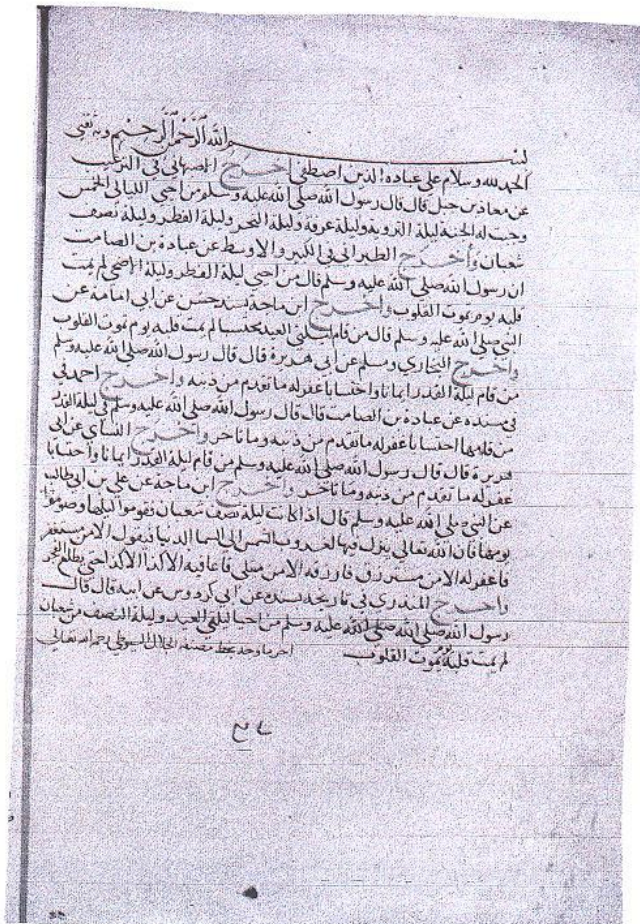 بسم الله الرحمن الرحيم وبه ثقتي
الحمد لله وسلام على عباده الذين اصطفى اخرج الاصبهاني في الترغيب
عن معاذ بن جبل قال قال رسول الله صلى الله عليه وسلم من احيى الليالي الخمس
وجبت له الجنة ليلة التروية وليلة عرفة وليلة النحر وليلة الفطر وليلة نصف
شعبان واخرج الطبراني في الكبير والاوسط عن عبادة بن الصامت
ان رسول الله صلى الله عليه وسلم قال من احيى ليلة الفطر وليلة الاضحى لم يمت
قلبه يوم تموت القلوب واخرج ابن ماجة بسند حسن عن ابي امامة عن
النبي صلى الله عليه وسلم قال من قام ليلتي العيد محتسبا لم يمت قلبه يوم تموت القلوب
واخرج البخاري ومسلم عن ابي هريرة قال قال رسول الله صلى الله عليه وسلم
من قام ليلة القدر ايمانا واحتسابا غفر له ما تقدم من ذنبه واخرج احمد في
في مسنده عن عبادة بن الصامت قال قال رسول الله صلى الله عليه وسلم في ليلة القدر
من قامها احتسابا غفر له ما تقدم من ذنبه وما تاخر واخرج النساي عن ابي
هريرة قال قال رسول الله صلى الله عليه وسلم من قام ليلة القدر ايمانا واحتسابا
غفر له ما تقدم من ذنبه وما تاخر واخرج ابن ماجة عن علي بن ابي طالب
عن النبي صلى الله عليه وسلم قال اذا كانت ليلة نصف شعبان فقوموا ليلها وصوموا
يومها فان الله تعالى ينزل فيها لغروب الشمس الى السما الدنيا فيقول الا من مستغفر
فاغفر له الا من مسترزق فارزقه الا من مبتلى فاعافيه الا كذا الا كذا حتى يطلع الفجر
واخرج المنذري في تاريخه بسنده عن ابن كردوس عن ابيه قال قال
رسول الله صلى الله صلى الله عليه وسلم من احيا ليلتي العيد وليلة النصف من شعبان
لم يمت قلبه يوم تموت القلوب اخر ما وجد بخط مصنفه الجلال السيوطي رحمه الله تعالى